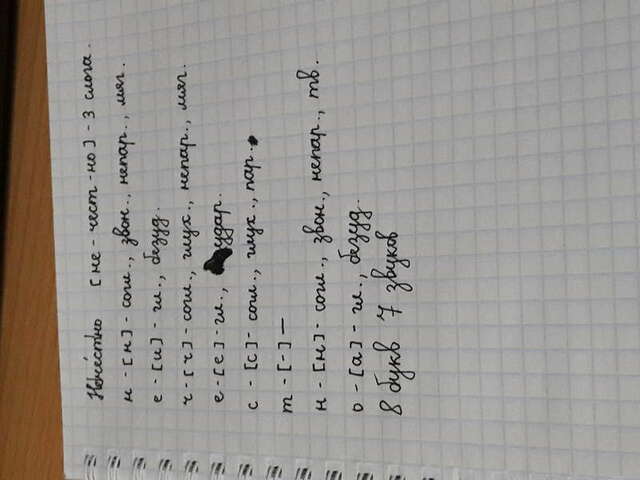 Нече́стно [не - чест - но] - 3 слога.
н - [н] - согл., звон., непар., мяг.
е - [и] - гл., безуд.
ч - [ч] - согл., глух., непар., мяг.
е - [е] - гл., удар.
с - [с] - согл., глух., пар.
т - [-] —
н - [н] - согл., звон., непар., тв.
о - [а] - гл., безуд.
8 букв 7 звуков